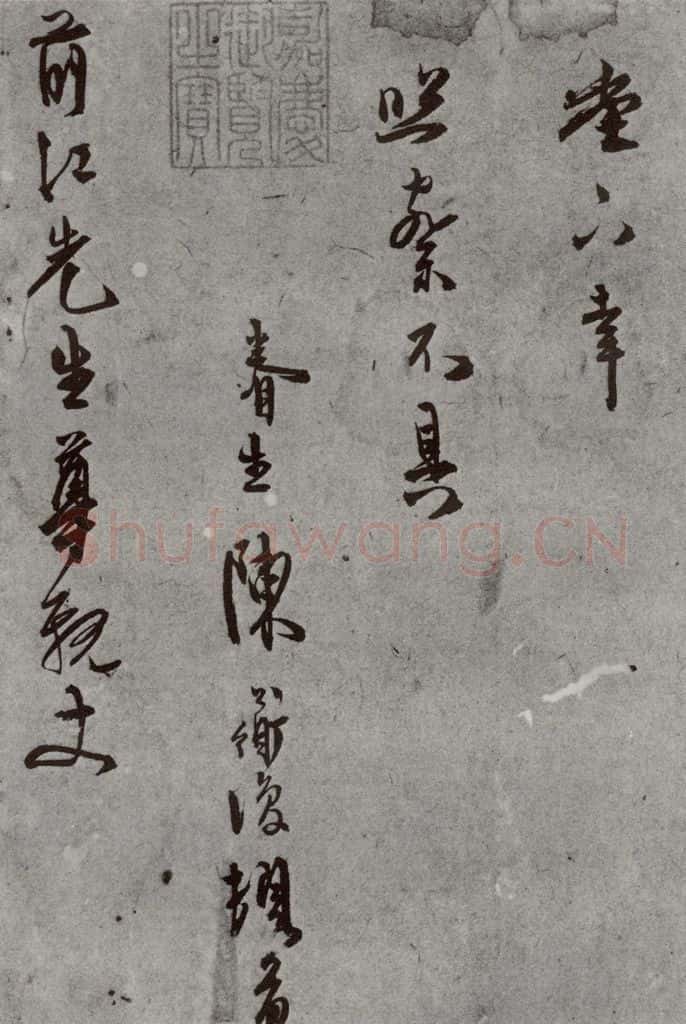 幸
照察不具
嘉慶
御覽
之寶
眷生陳衡復首
前江先生尊親丈
Shufawang.CN